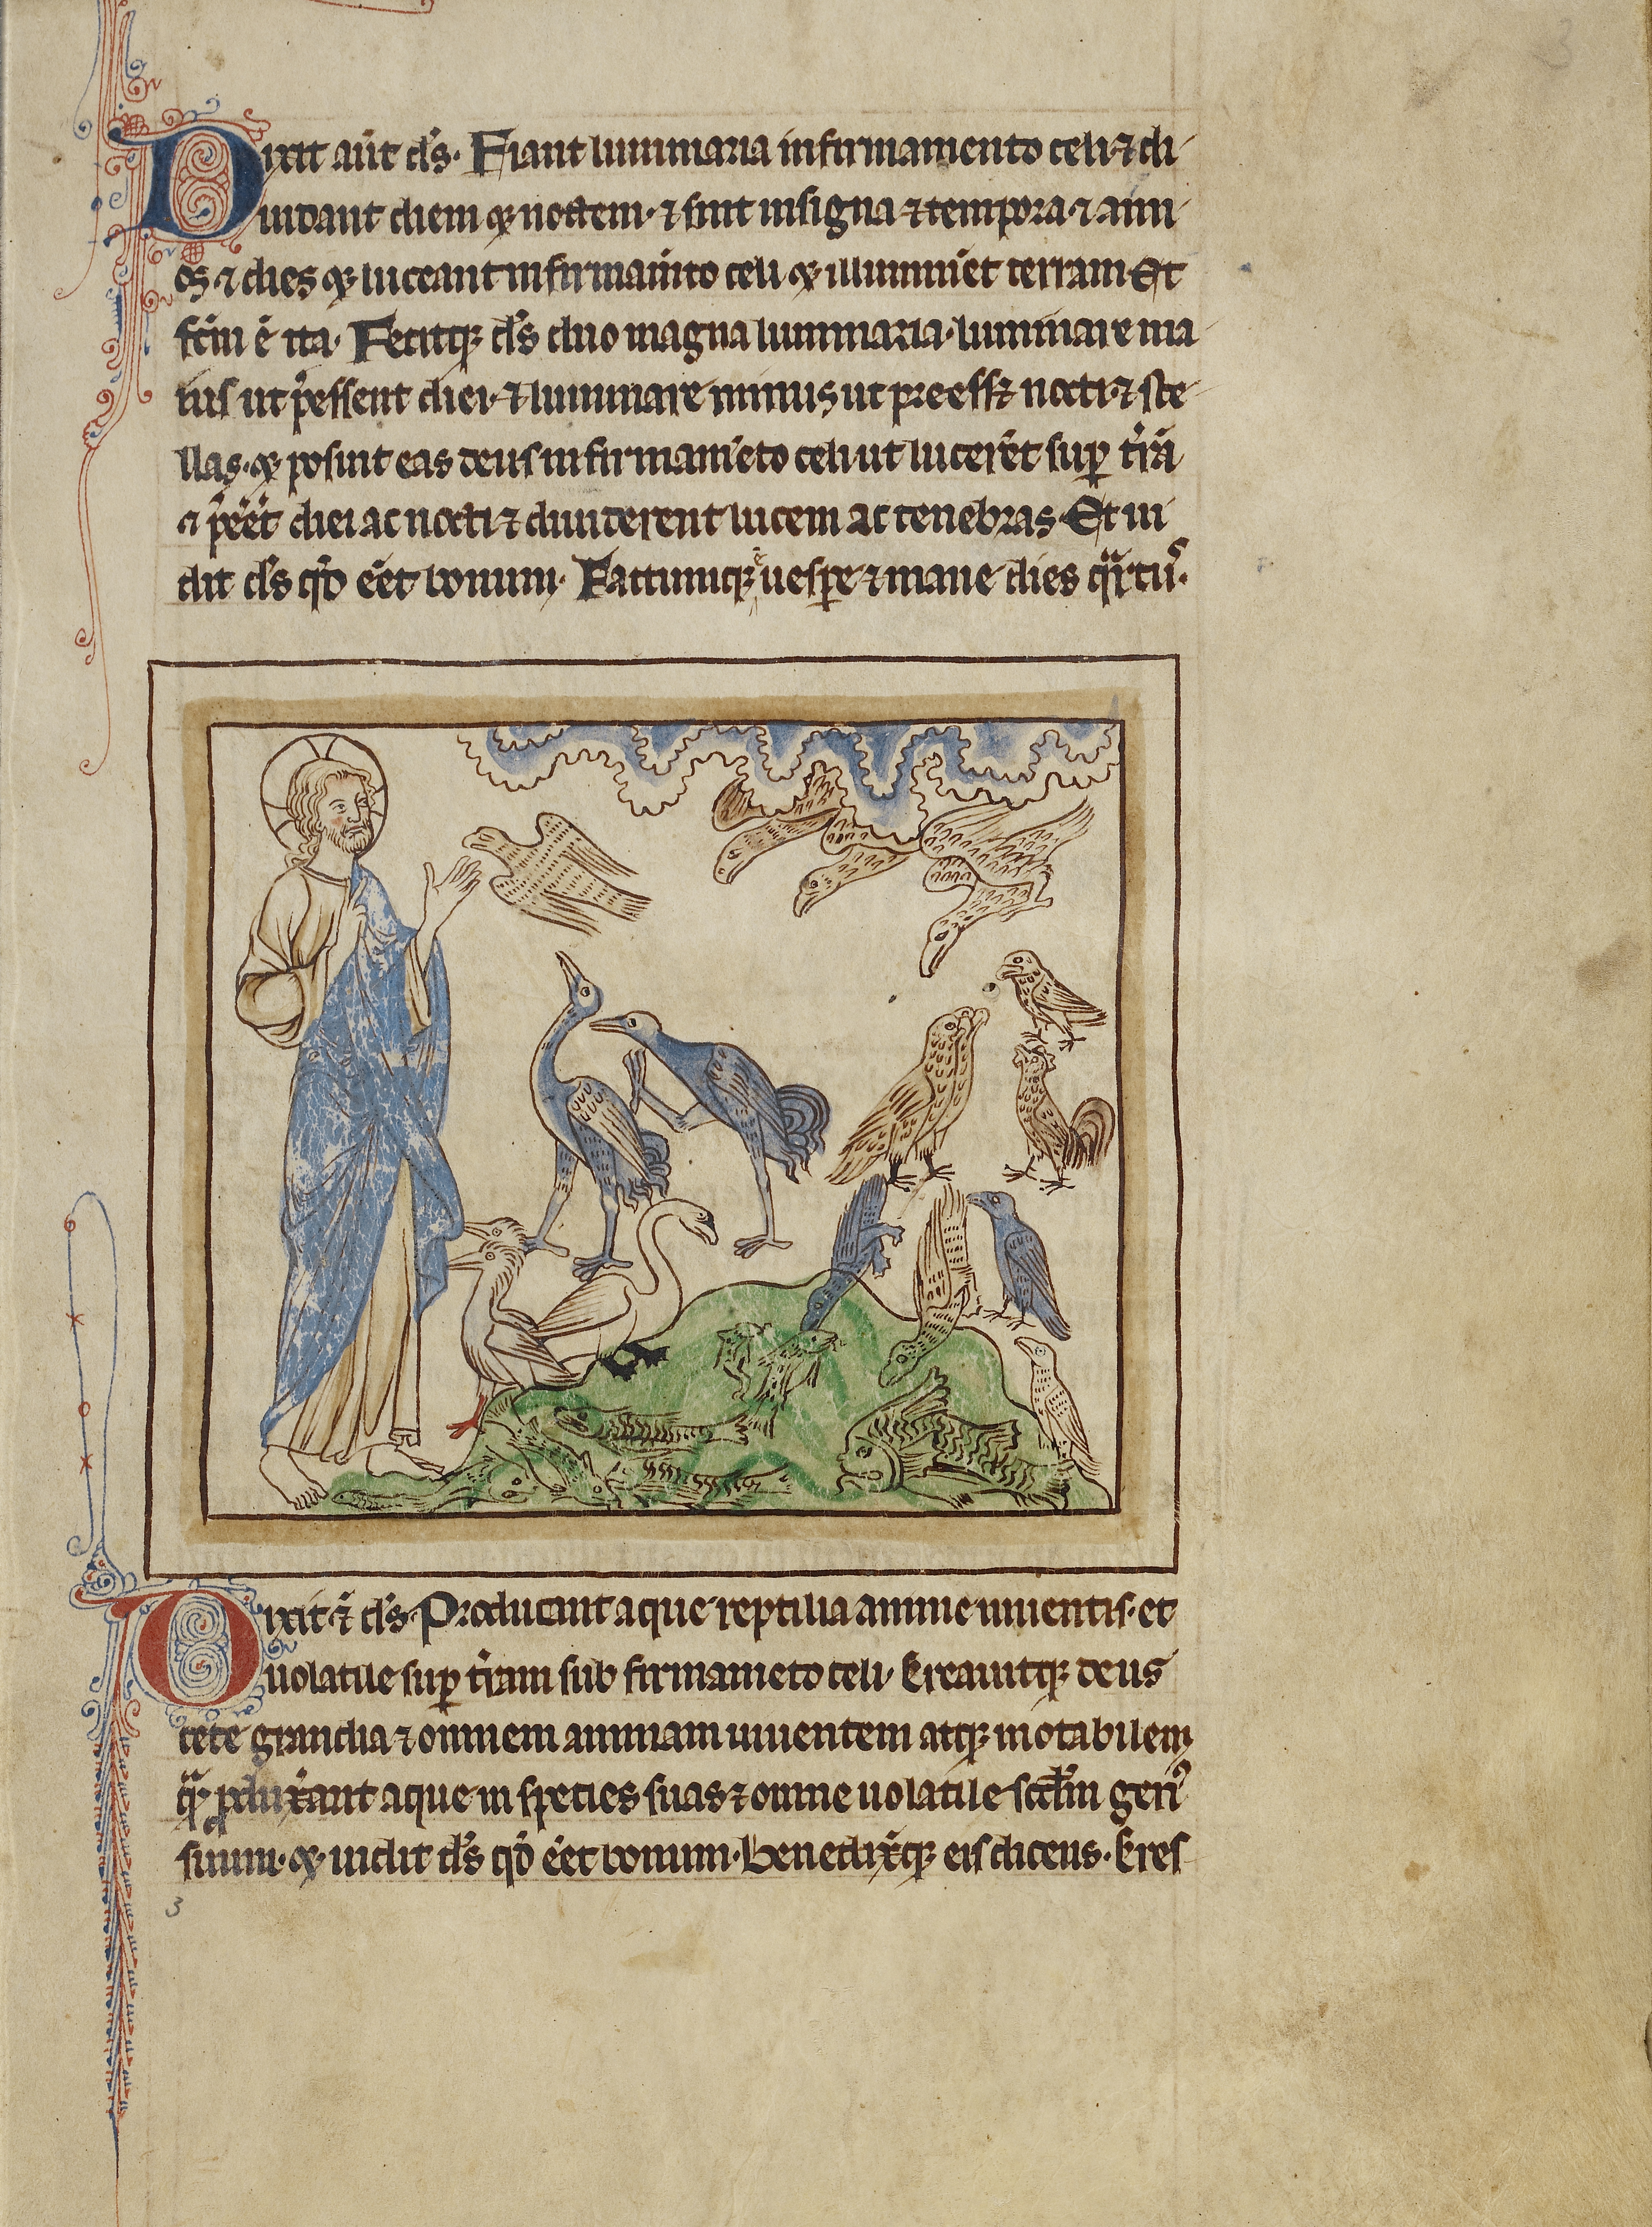 3
Dixit aut̄ ds̄. Fiant luminaria in firmamento celi ⁊ di-
uidant diem ꝙ noctem. ⁊ sint in signa ⁊ tempora. ⁊ ann-
os. ⁊ dies ꝙ luceant in firmam̄to celi ꝙ illumin̄et terram Et
fc̄m ē ita. Fecitqꝫ ds̄ duo magna luminaria. luminare ma-
ius ut p̄essent diei. ⁊ luminare minus ut preessꝫ nocti. ⁊ ste-
llas. ꝙ posuit eas deus in firmam̄eto celi ut lucer̄et suꝑ tr̄a
⁊ p̄eēt diei ac nocti ⁊ diuiderent lucem ac tenebras. Et ui
dit ds̄ qd̄ eēt bonum. Factumqꝫ ē uesꝑe ⁊ mane dies qᵃrtuˢ.
Dixit ēt ds̄. Producant aque reptilia anime uiuentis. et
uolatile suꝑ tr̄am sub firmam̄eto celi. Creauitqꝫ deus
cete grandia ⁊ omnem animam uiuentem atqꝫ motabilem
qᵃ ꝓdux̄ant aque in species suas ⁊ omne uolatile scd̄m gen᾽
suum. ꝙ uidit ds̄ qd̄ eēt bonum. Benedix̄qꝫ eis dicens. Cres-
3